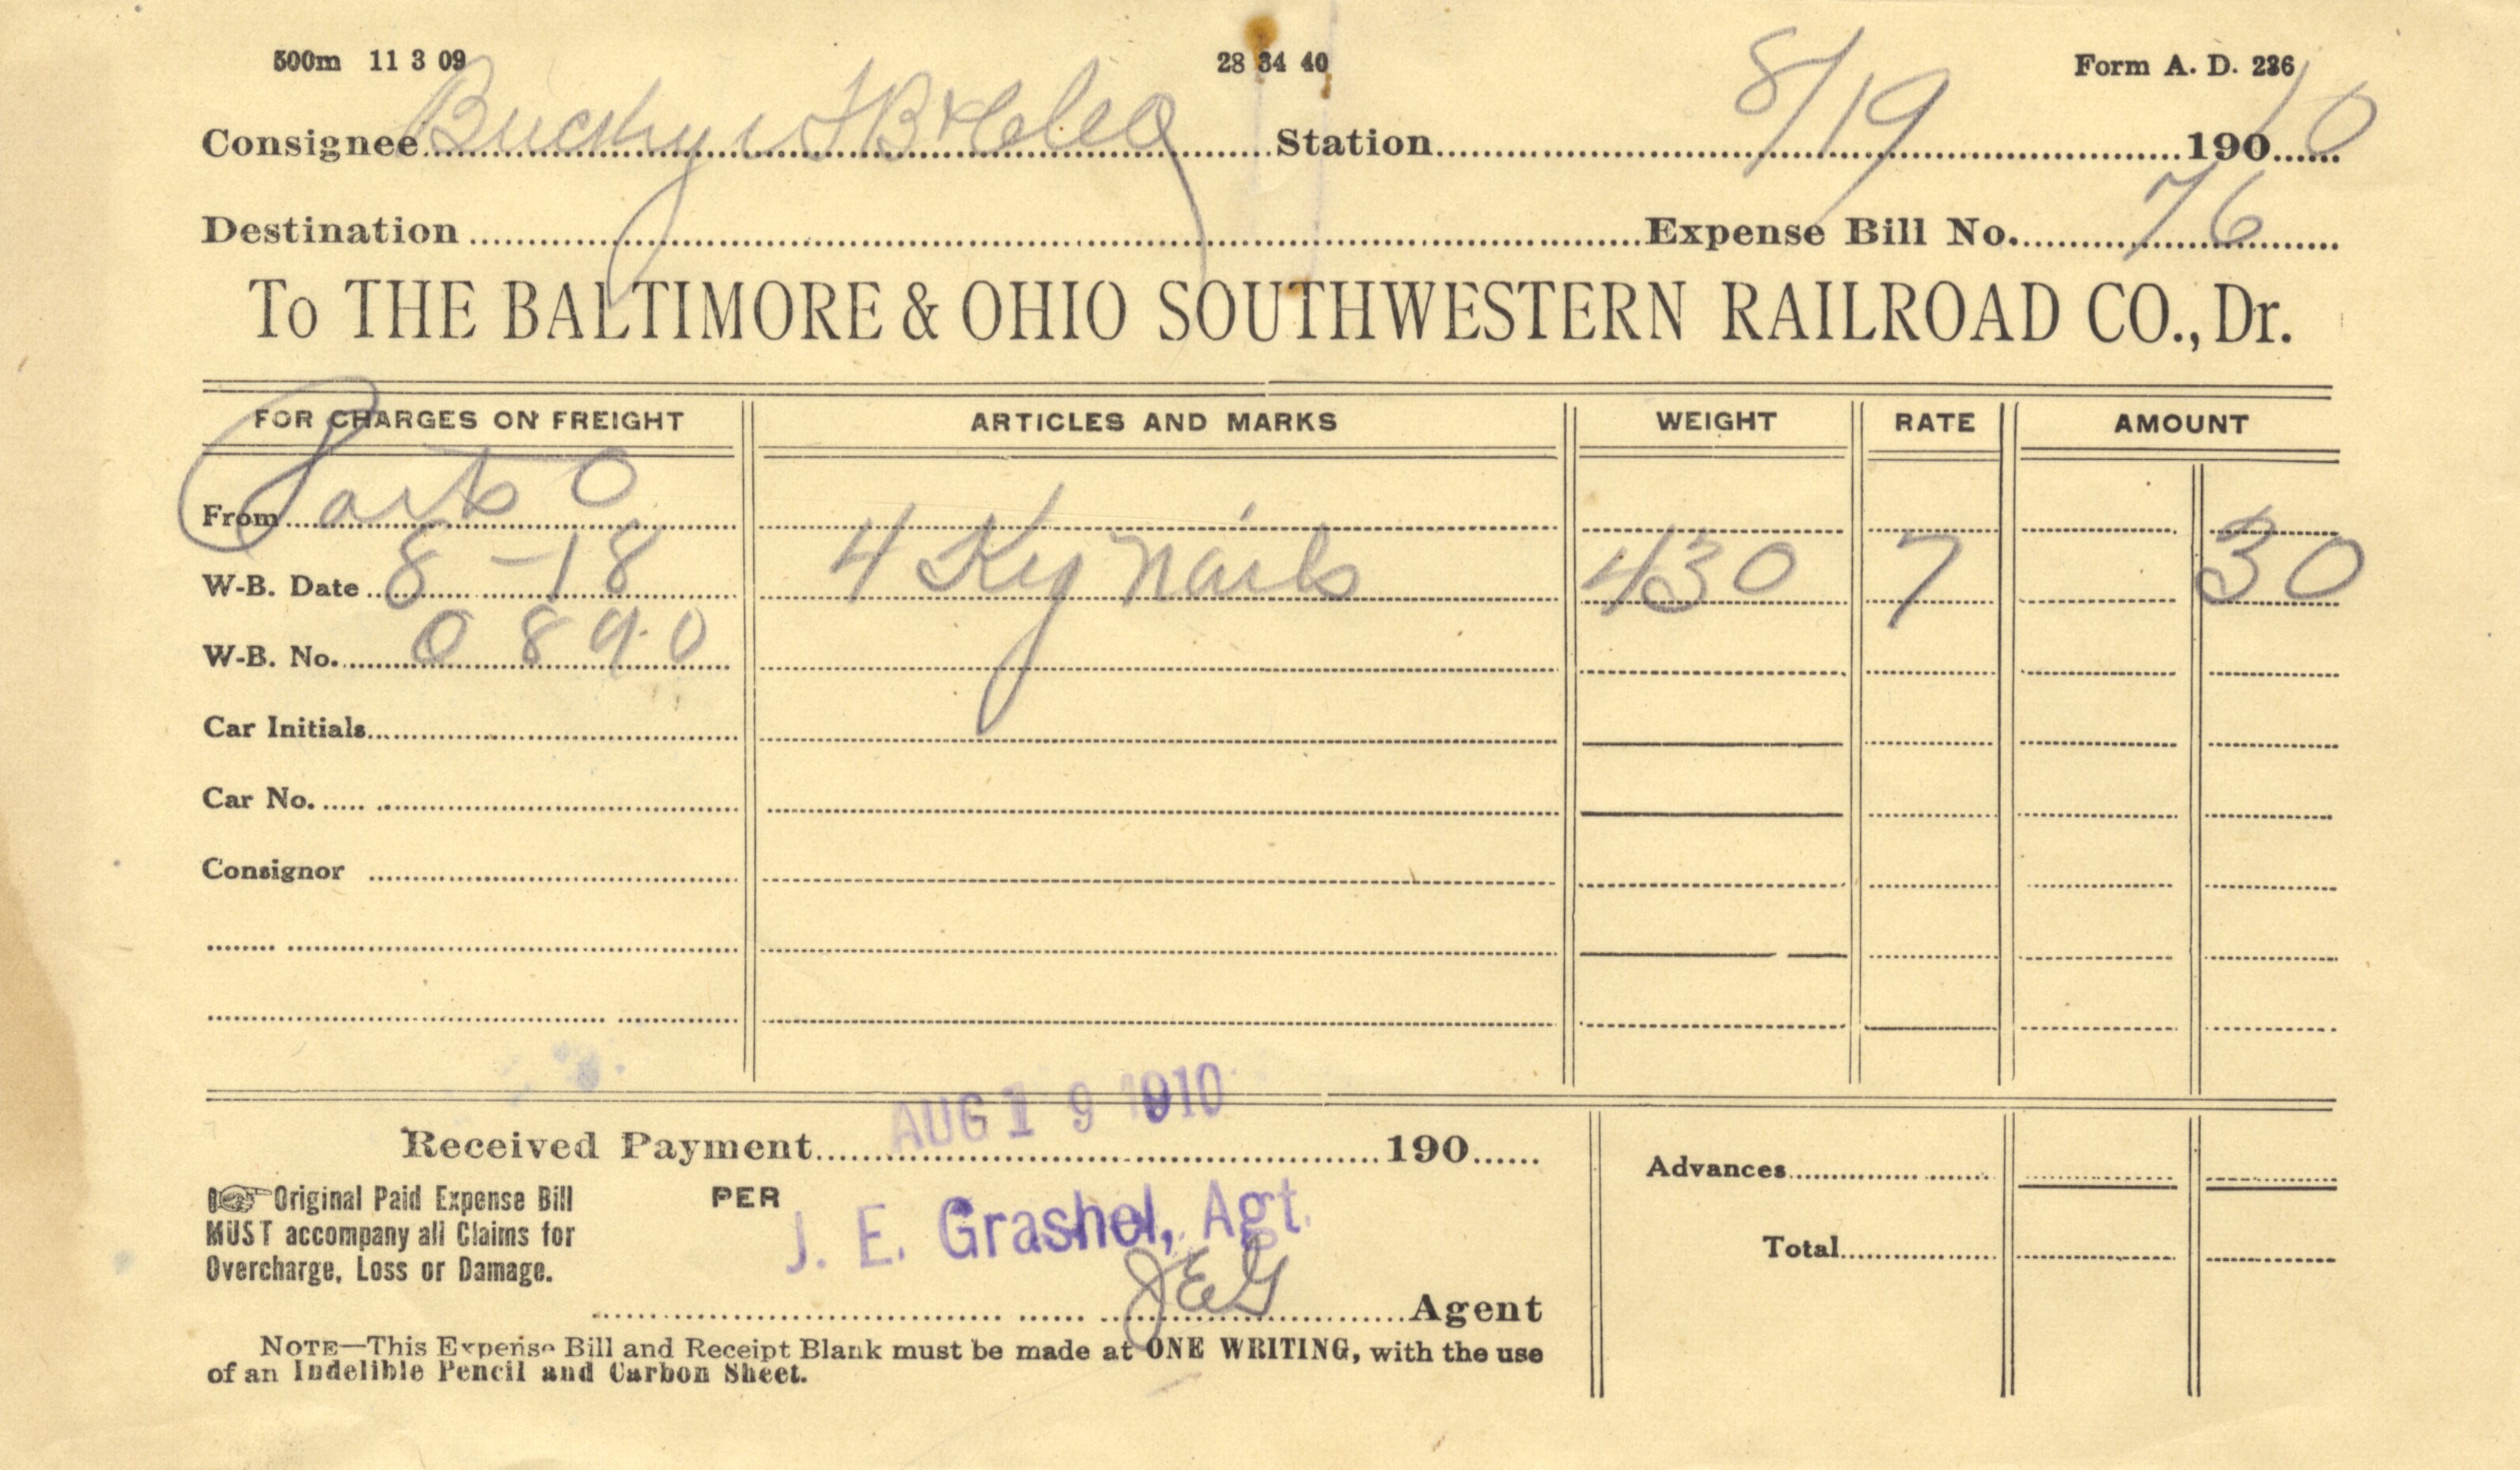 500m 11 3 09 28 34 40 Form A. D. 236
Consignee Station 8/19 190 10
Destination Expense Bill No. 76
To THE BALTIMORE & OHIO SOUTHWESTERN RAILROAD CO., Dr.
FOR CHARGES ON FREIGHT ARTICLES AND MARKS WEIGHT RATE AMOUNT
From Ports O
W-B. Date 8-18 4 Kg Nails 430 7 30
W-B. No. 0890
Car Initials
Car No.
Consignor
AUG 19 1910
Received Payment 190
Advances
☞ Original Paid Expense Bill
MUST accompany all Claims for
Overcharge, Loss or Damage.
PER
J. E. Grashel, Agt.
Total
JEG Agent
NOTE—This Expense Bill and Receipt Blank must be made at ONE WRITING, with the use
of an Indelible Pencil and Carbon Sheet.